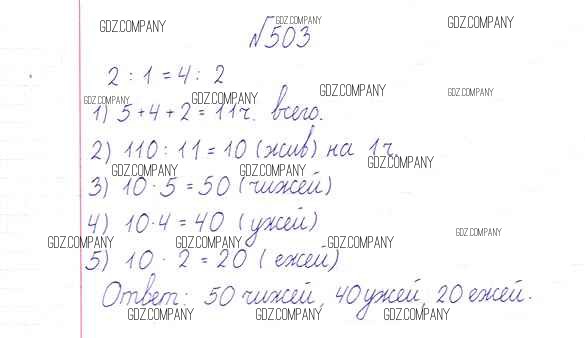 GDZ.COMPANY GDZ.COMPANY GDZ.COMPANY
№503
2 : 1 = 4 : 2
GDZ.COMPANY GDZ.COMPANY GDZ.COMPANY GDZ.COMPANY
1) 5 + 4 + 2 = 11 ч. всего.
2) 110 : 11 = 10 (жив) на 1 ч.
GDZ.COMPANY GDZ.COMPANY GDZ.COMPANY
3) 10 · 5 = 50 (чижей)
4) 10 · 4 = 40 (ужей)
GDZ.COMPANY GDZ.COMPANY GDZ.COMPANY GDZ.COMPANY
5) 10 · 2 = 20 (ежей)
Ответ: 50 чижей, 40 ужей, 20 ежей.
GDZ.COMPANY GDZ.COMPANY GDZ.COMPANY